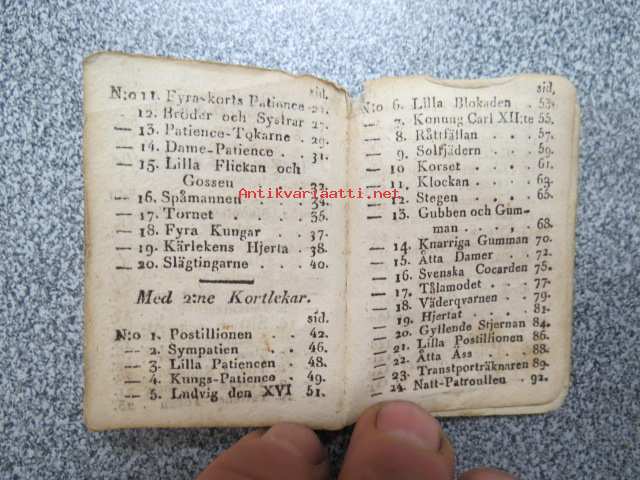 sid.
N:o 11. Fyra-korts Patience 25.
12. Bröder och Systrar 27.
— 13. Patience-Tokarne . 29.
— 14. Dame-Patience . . 31.
— 15. Lilla Flickan och
Gossen . . . 33.
— 16. Spåmannen . . 34.
— 17. Tornet . . . 35.
— 18. Fyra Kungar . . 37.
— 19. Kärlekens Hjerta . 38.
— 20. Slägtingarne . . 40.
Med 2:ne Kortlekar.
sid.
N:o 1. Postillionen . . 42.
— 2. Sympatien . . 46.
— 3. Lilla Patiencen . 48.
— 4. Kungs-Patience . 49.
— 5. Ludvig den XVI 51.
sid.
N:o 6. Lilla Blokaden . 53.
— 7. Konung Carl XII:te 55.
— 8. Råttfällan . . 57.
— 9. Solfjädern . . 59.
— 10 Korset . . . 61.
— 11. Klockan . . . 63.
— 12. Stegen . . . 65.
— 13. Gubben och Gum-
man . . . . 68.
— 14. Knarriga Gumman 70.
— 15. Åtta Damer . . 72.
— 16. Svenska Cocarden 75.
— 17. Tålamodet . . 77.
— 18. Väderqvarnen . 79.
— 19. Hjertat . . . 81.
— 20. Gyllende Stjernan 84.
— 21. Lilla Postillionen 86.
— 22. Åtta Äss . . . 88.
— 23. Transporträknaren 89.
— 24. Natt-Patrullen . 92.
Antikvariaatti.net